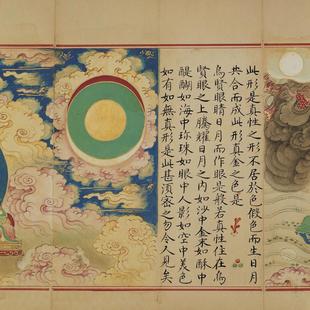 此形是真性之形不居於色假色而生日月
共合而成此形真金之色是
烏賢眼睛日月而作眼是般若真性住在烏
賢眼之上騰耀日月之内如沙中金米如酥中
醍醐如海中珎珠如眼中人影如空中美色
如有如無真形是此甚湏密之勿令人見矣